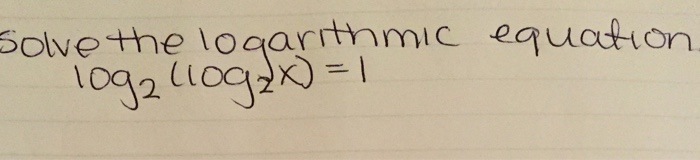 Solve the logarithmic equation.
log₂(log₂x) = 1